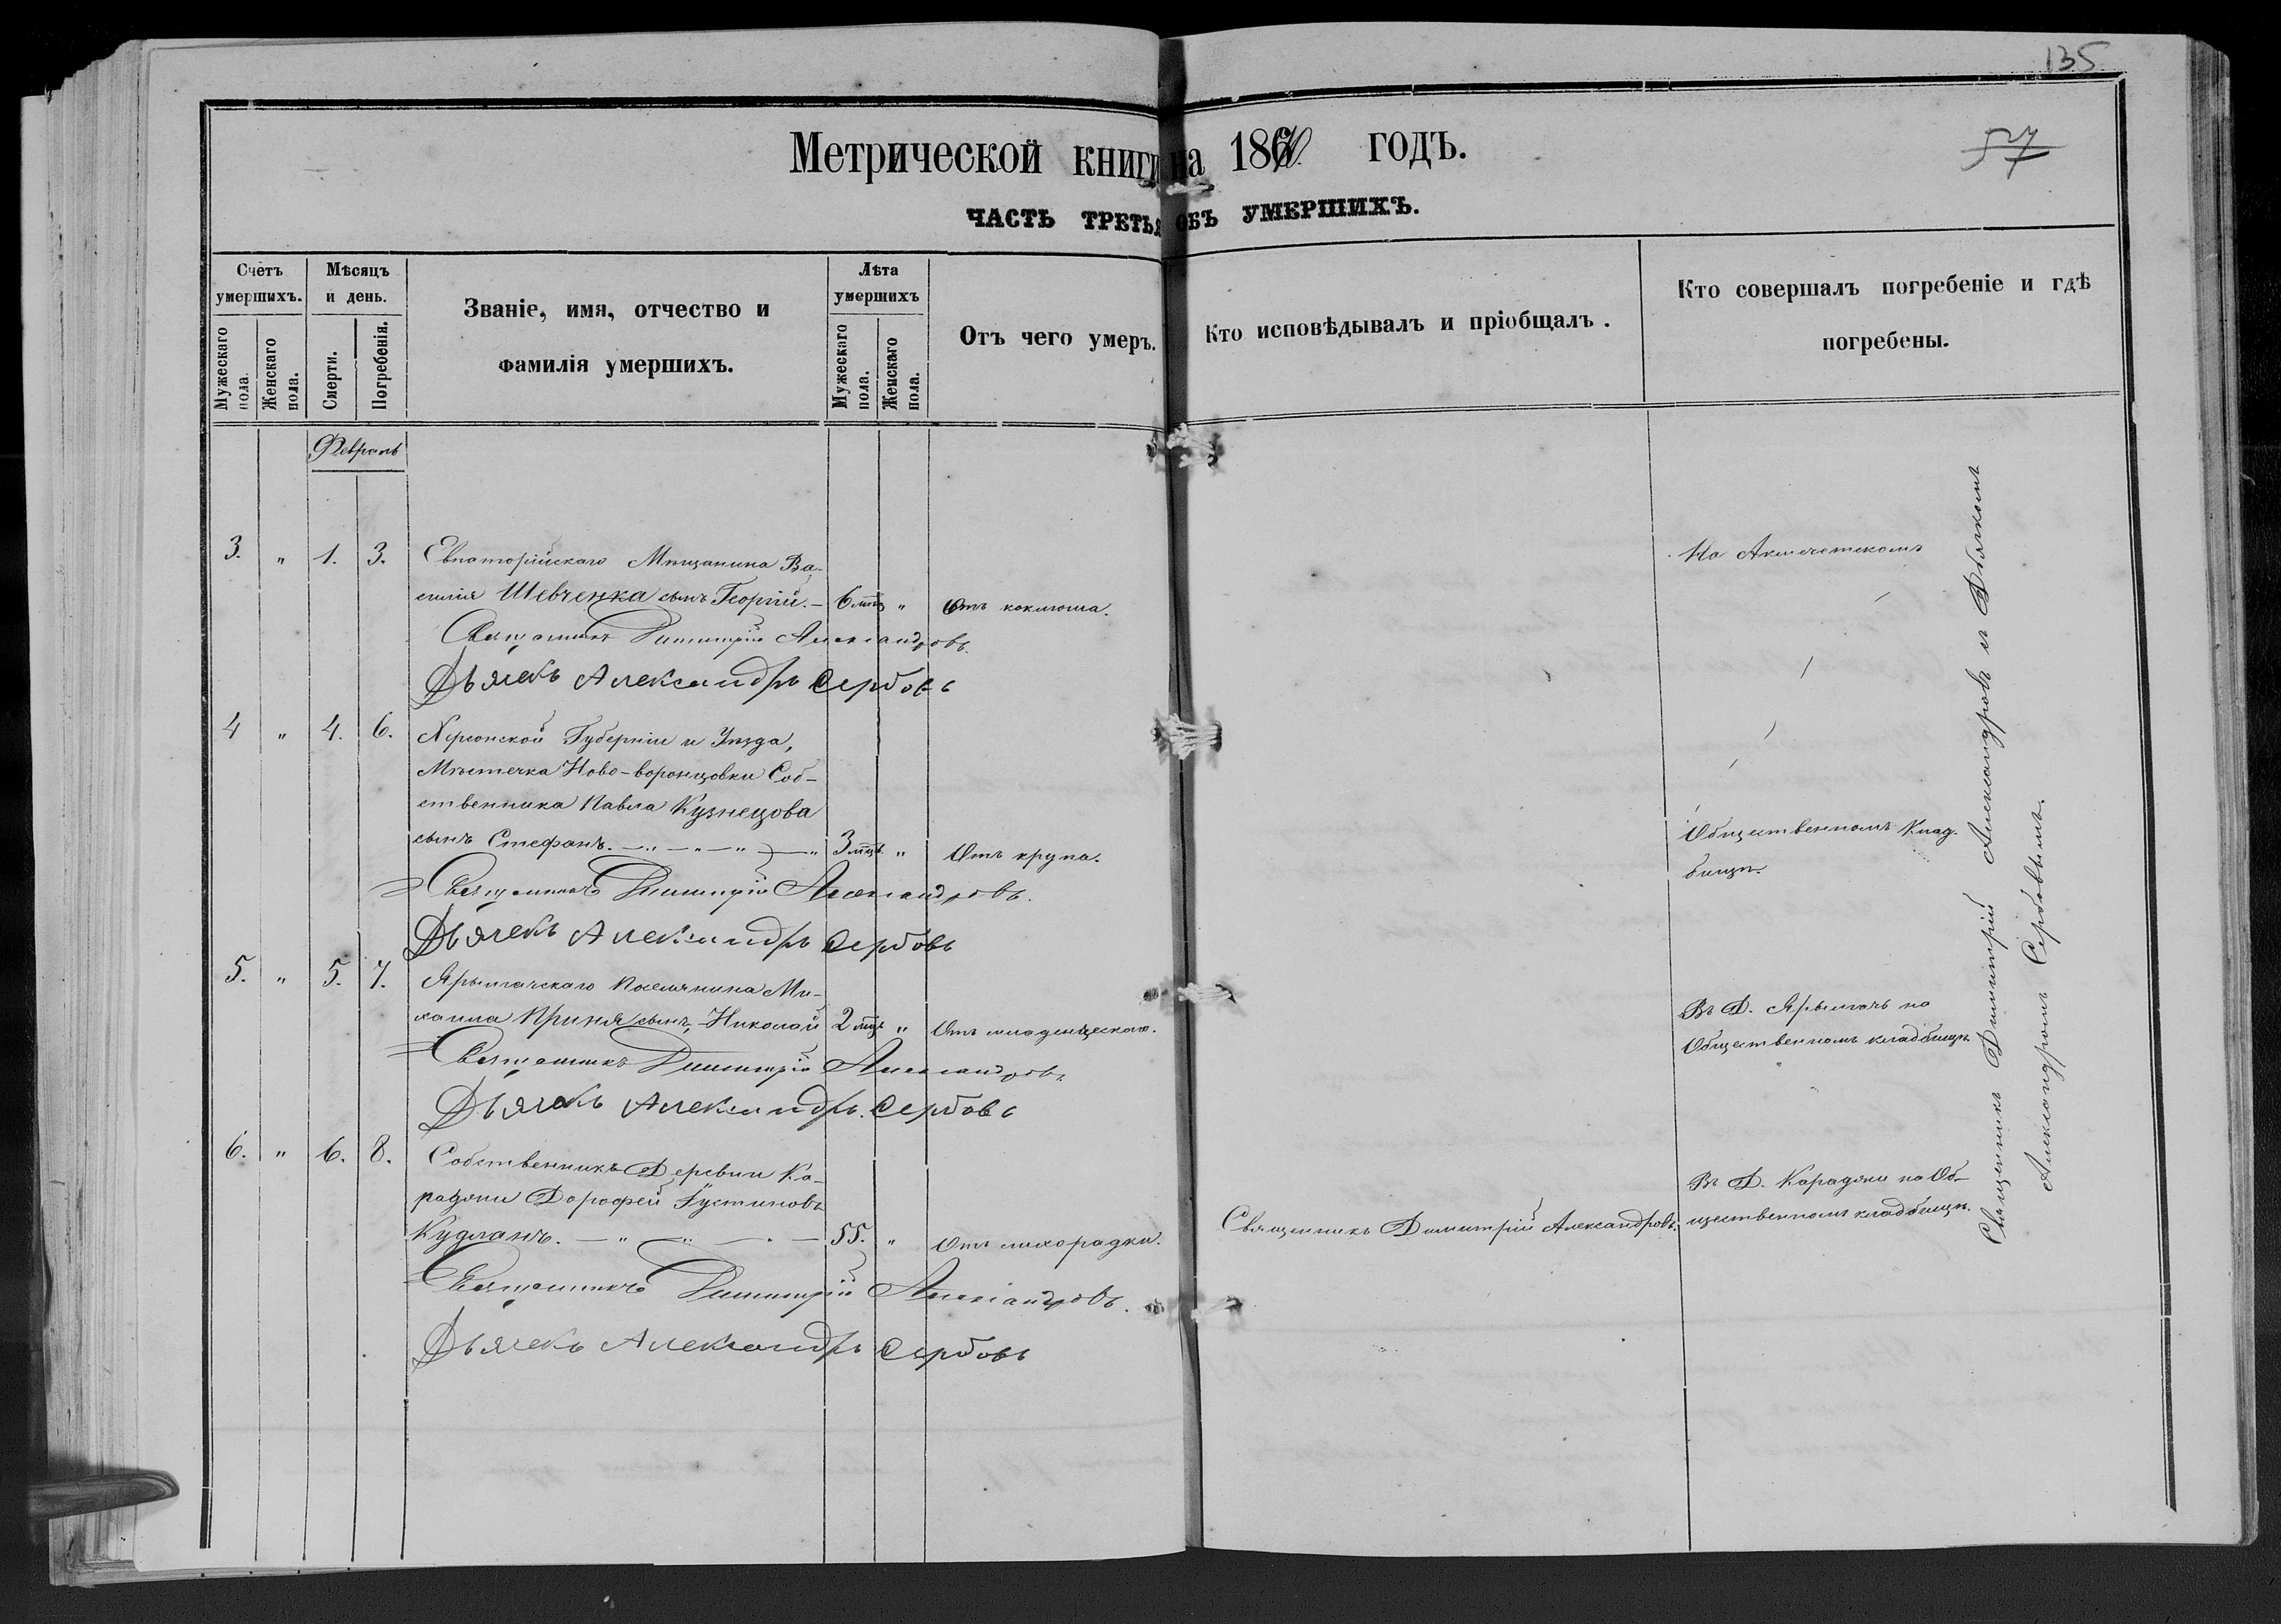 135
Метрической книги на 1870 годъ.
57
ЧАСТЬ ТРЕТЬЯ ОБЪ УМЕРШИХЪ.
Счетъ умершихъ.
Мужескаго пола.
Женскаго пола.
Мѣсяцъ и день.
Смерти.
Погребенія.
Званіе, имя, отчество и
фамилія умершихъ.
Лѣта умершихъ
Мужескаго пола.
Женскаго пола.
Отъ чего умеръ.
Кто исповѣдывалъ и пріобщалъ.
Кто совершалъ погребеніе и гдѣ
погребены.
Февраль
3. " 1. 3. Евпаторійскаго Мѣщанина Ва-
силія Шевченка сынъ Георгій. — 6 мцъ " Отъ коклюша.
На Акмечетскомъ
Священникъ Димитрій Александровъ.
Дьячекъ Александръ Сербовъ
4 " 4. 6. Херсонской Губерніи и Уѣзда,
Мѣстечка Ново-воронцовки Соб-
ственника Павла Кузнецова
сынъ Стефанъ. — " — " — " — " 3 мцъ. " Отъ крупа.
Общественномъ Клад-
бищѣ.
Священникъ Димитрій Александровъ.
Дьячекъ Александръ Сербовъ
5. " 5. 7. Ярылгачскаго Поселянина Ми-
хаила Приня сынъ, Николай 2 мцъ " Отъ младенческаго.
Въ Д. Ярылгачъ на
Общественномъ кладбищѣ.
Священникъ Димитрій Александровъ.
Дьячекъ Александръ Сербовъ
6. " 6. 8. Собственникъ Деревни Ка-
раджи Дорофей Іустиновъ
Кудланъ. — " — " — " — 55. " Отъ лихорадки.
Священникъ Димитрій Александровъ.
Въ Д. Караджи на Об-
щественномъ кладбищѣ.
Священникъ Димитрій Александровъ.
Дьячекъ Александръ Сербовъ
Священникъ Димитрій Александровъ съ Дьячкомъ
Александромъ Сербовымъ.